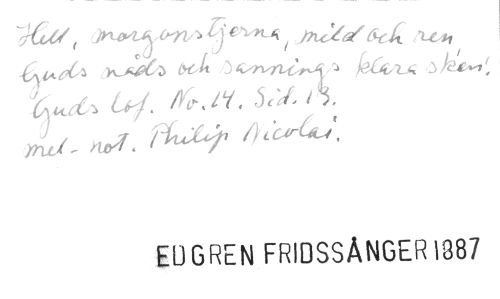 Hell, morgonstjerna, mild och ren
Guds nåds och sannings klara sken!
Guds lof. No. 14. Sid. 13.
mel- not. Philip Nicolai.
EDGREN FRIDSSÅNGER 1887